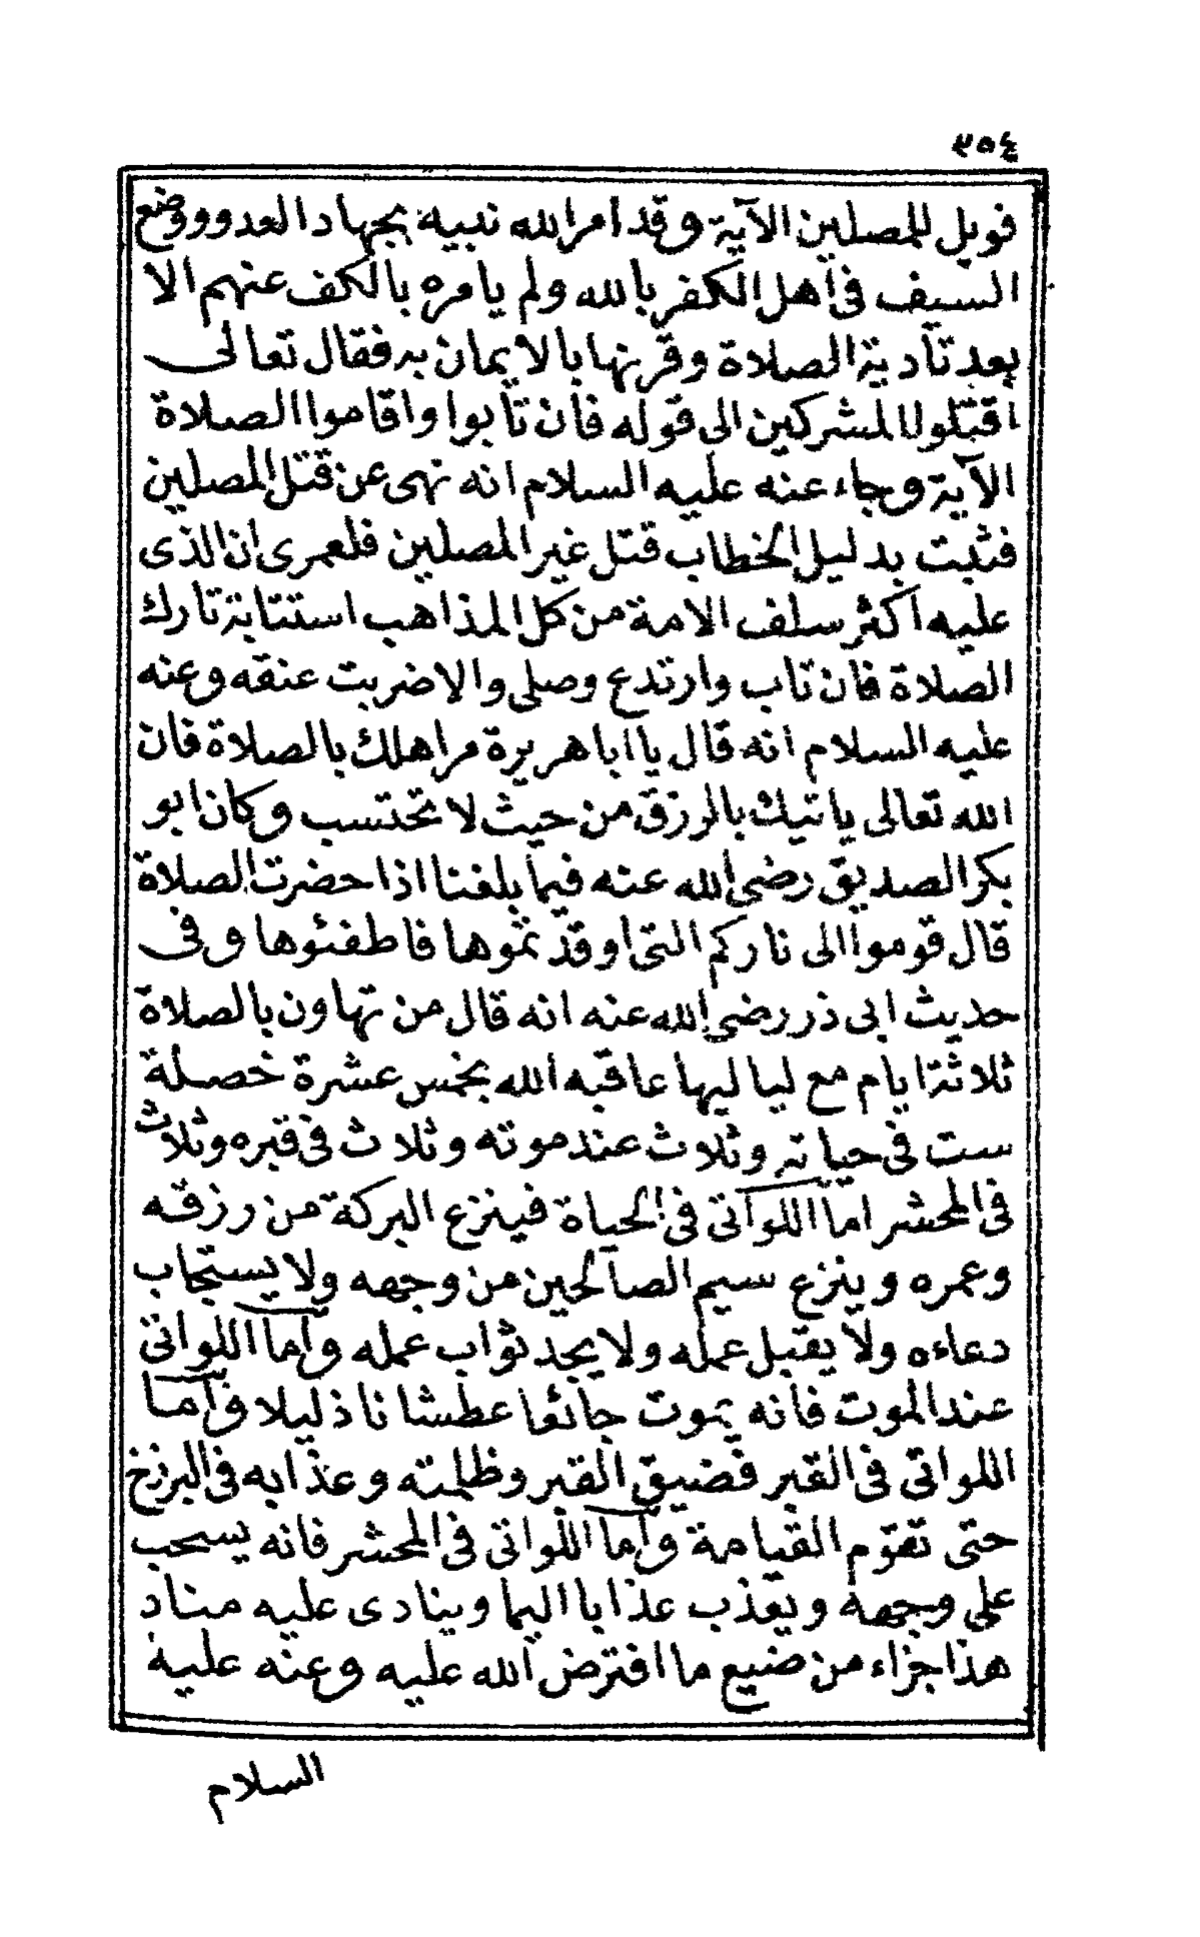 ٣٥٤
فويل للمصلين الآية وقد امر الله نبيه بجهاد العدو ووضع
السيف فى اهل الكفر بالله ولم يامره بالكف عنهم الا
بعد تادية الصلاة وقرنها بالايمان به فقال تعالى
اقتلوا المشركين الى قوله فان تابوا واقاموا الصلاة
الآية وجاء عنه عليه السلام انه نهى عن قتل المصلين
فثبت بدليل الخطاب قتل غير المصلين فلعمرى ان الذى
عليه اكثر سلف الامة من كل المذاهب استتابة تارك
الصلاة فان تاب وارتدع وصلى والا ضربت عنقه وعنه
عليه السلام انه قال يا ابا هريرة مر اهلك بالصلاة فان
الله تعالى ياتيك بالرزق من حيث لا تحتسب وكان ابو
بكر الصديق رضى الله عنه فيما بلغنا اذا حضرت الصلاة
قال قوموا الى ناركم التى اوقدتموها فاطفئوها وفى
حديث ابى ذر رضى الله عنه انه قال من تهاون بالصلاة
ثلاثة ايام مع لياليها عاقبه الله بخمس عشرة خصلة
ست فى حياته وثلاث عند موته وثلاث فى قبره وثلاث
فى المحشر اما اللواتى فى الحياة فينزع البركة من رزقه
وعمره وينزع سيم الصالحين من وجهه ولا يستجاب
دعاءه ولا يقبل عمله ولا يجد ثواب عمله واما اللواتى
عند الموت فانه يموت جائعا عطشانا ذليلا واما
اللواتى فى القبر فضيق القبر وظلمته وعذابه فى البرزخ
حتى تقوم القيامة واما اللواتى فى المحشر فانه يسحب
على وجهه ويعذب عذابا اليما وينادى عليه مناد
هذا جزاء من ضيع ما افترض الله عليه وعنه عليه
السلام